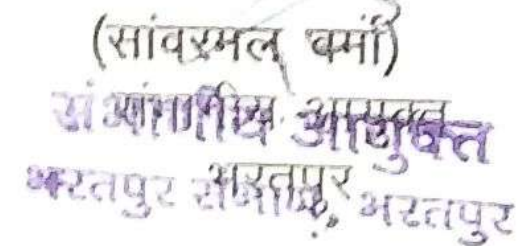 (सांवरमल वर्मा)
संभागीय आयुक्त
भरतपुर
भरतपुर संभाग, भरतपुर